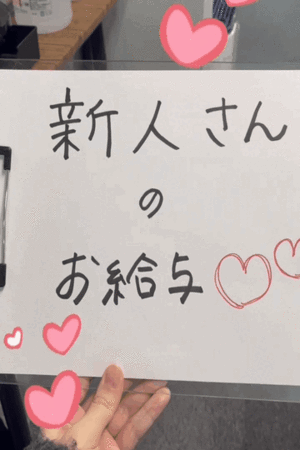 新人さん
の
お給与